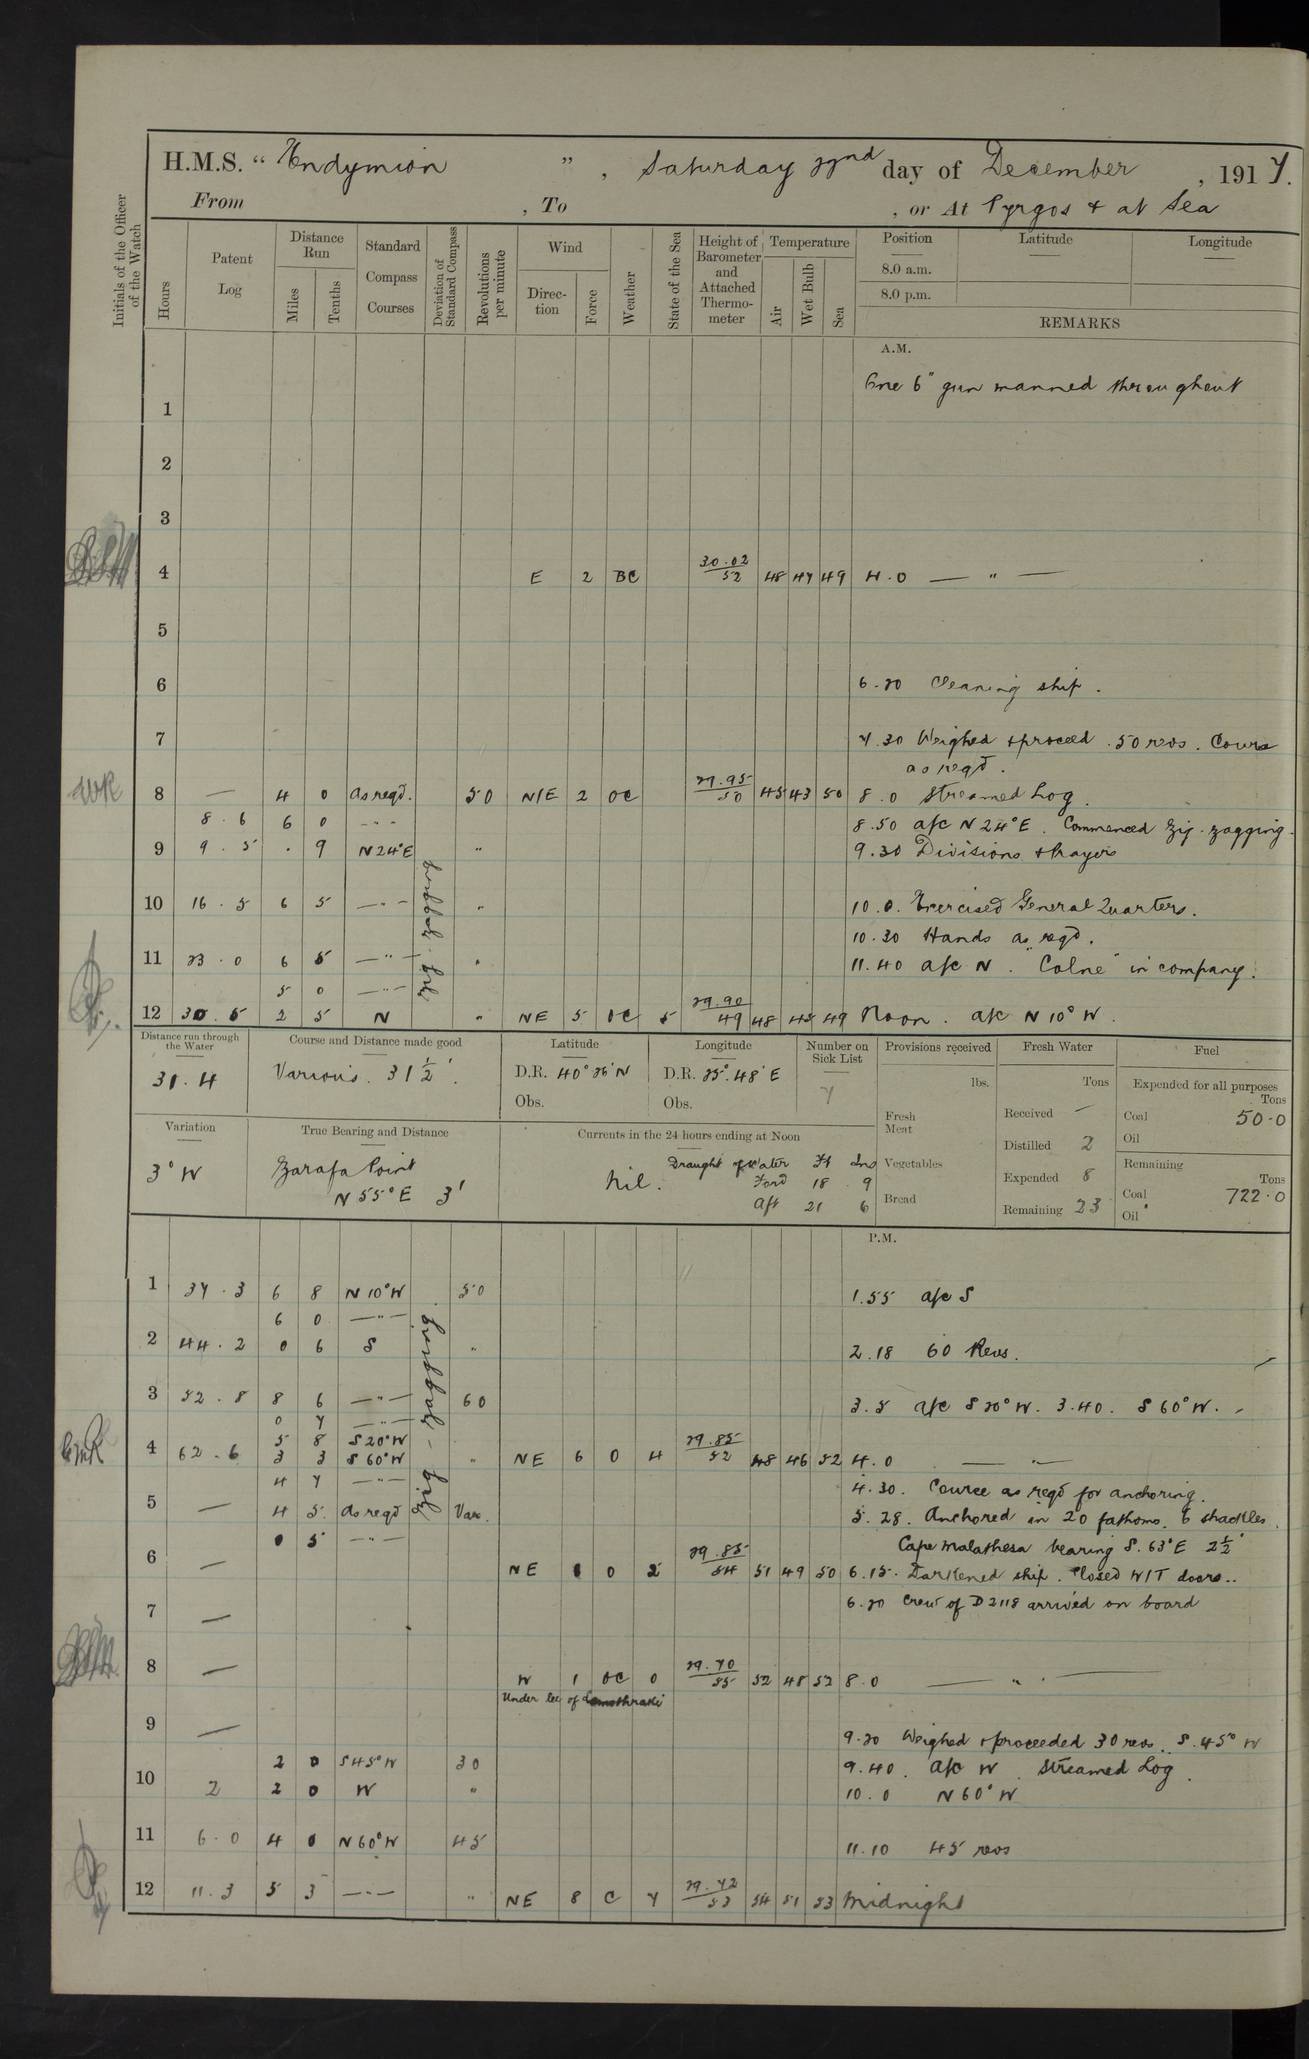 H.M.S. "Endymion", Saturday 22nd day of December, 1917.
From , To , or At Pyrgos & at Sea
Initials of the Officer of the Watch
Hours
Patent Log
Distance Run
Miles
Tenths
Standard Compass Courses
Deviation of Standard Compass
Revolutions per minute
Wind
Direction
Force
Weather
State of the Sea
Height of Barometer and Attached Thermometer
Temperature
Air
Wet Bulb
Sea
Position Latitude Longitude
8.0 a.m.
8.0 p.m.
REMARKS
A.M.
One 6" gun manned throughout
1
2
3
4 E 2 BC 30.02 52 48 47 49 4.0 — " —
5
6 6.20 Cleaning ship.
7 7.30 Weighed & proceed. 50 revs. Course
as reqd.
8 — 4 0 as reqd. 50 N/E 2 OC 29.95 50 45 43 50 8.0 Streamed Log.
8.6 6 0 - " - 8.50 a/c N 24° E. Commenced Zig-zagging.
9 9.5 . 9 N24°E " 9.30 Divisions & Prayers
Zig-zagging
10 16.5 6 5 — " - " 10.0. Exercised General Quarters.
10.30 Hands as reqd.
11 23.0 6 5 — " — " 11.40 a/c N. "Colne" in company.
5 0 — " —
12 30.5 2 5 N " NE 5 OC 5 29.90 49 48 45 49 Noon. a/c N 10° W.
Distance run through the Water
31.4
Course and Distance made good
Various. 31½'.
Latitude
D.R. 40° 26' N
Obs.
Longitude
D.R. 25° 48' E
Obs.
Number on Sick List
7
Provisions received
lbs.
Fresh Meat
Vegetables
Bread
Fresh Water
Tons
Received —
Distilled 2
Expended 8
Remaining 23
Fuel
Expended for all purposes
Tons
Coal 50.0
Oil
Remaining
Tons
Coal 722.0
Oil
Variation
3° W
True Bearing and Distance
Zarafa Point
N 55° E 3'
Currents in the 24 hours ending at Noon
Nil.
Draught of Water Ft Ins
Ford 18 9
Aft 21 6
P.M.
1 37.3 6 8 N 10° W 50 1.55 a/c S
6 0 — " —
2 44.2 0 6 S " 2.18 60 Revs.
Zig-zagging
3 52.8 8 6 — " — 60 3.5 a/c S 20° W. 3.40. S 60° W.
0 7 — " —
5 8 S 20° W
4 62.6 3 3 S 60° W " NE 6 0 4 29.85 52 48 46 52 4.0 — " —
4 7 — " — 4.30. Course as reqd for anchoring.
5 — 4 5. as reqd Var. 5.28. Anchored in 20 fathoms. 6 shackles.
0 5 — " — Cape Malathesa bearing S. 63° E 2½'
6 — NE 0 2 29.85 54 51 49 50 6.15. Darkened ship. Closed W/T doors.
7 — 6.20 Crew of D2118 arrived on board
8 — W 1 OC 0 29.70 55 52 48 52 8.0 — " —
Under lee of Samothraki
9 — 9.20 Weighed & proceeded 30 revs. S. 45° W
2 0 S 45° W 30 9.40. a/c W. Streamed Log.
10 2 2 0 W " 10.0 N 60° W
11 6.0 4 0 N 60° W 45 11.10 45 revs
12 11.3 5 3 — " — " NE 8 C 7 29.72 53 54 51 53 Midnight